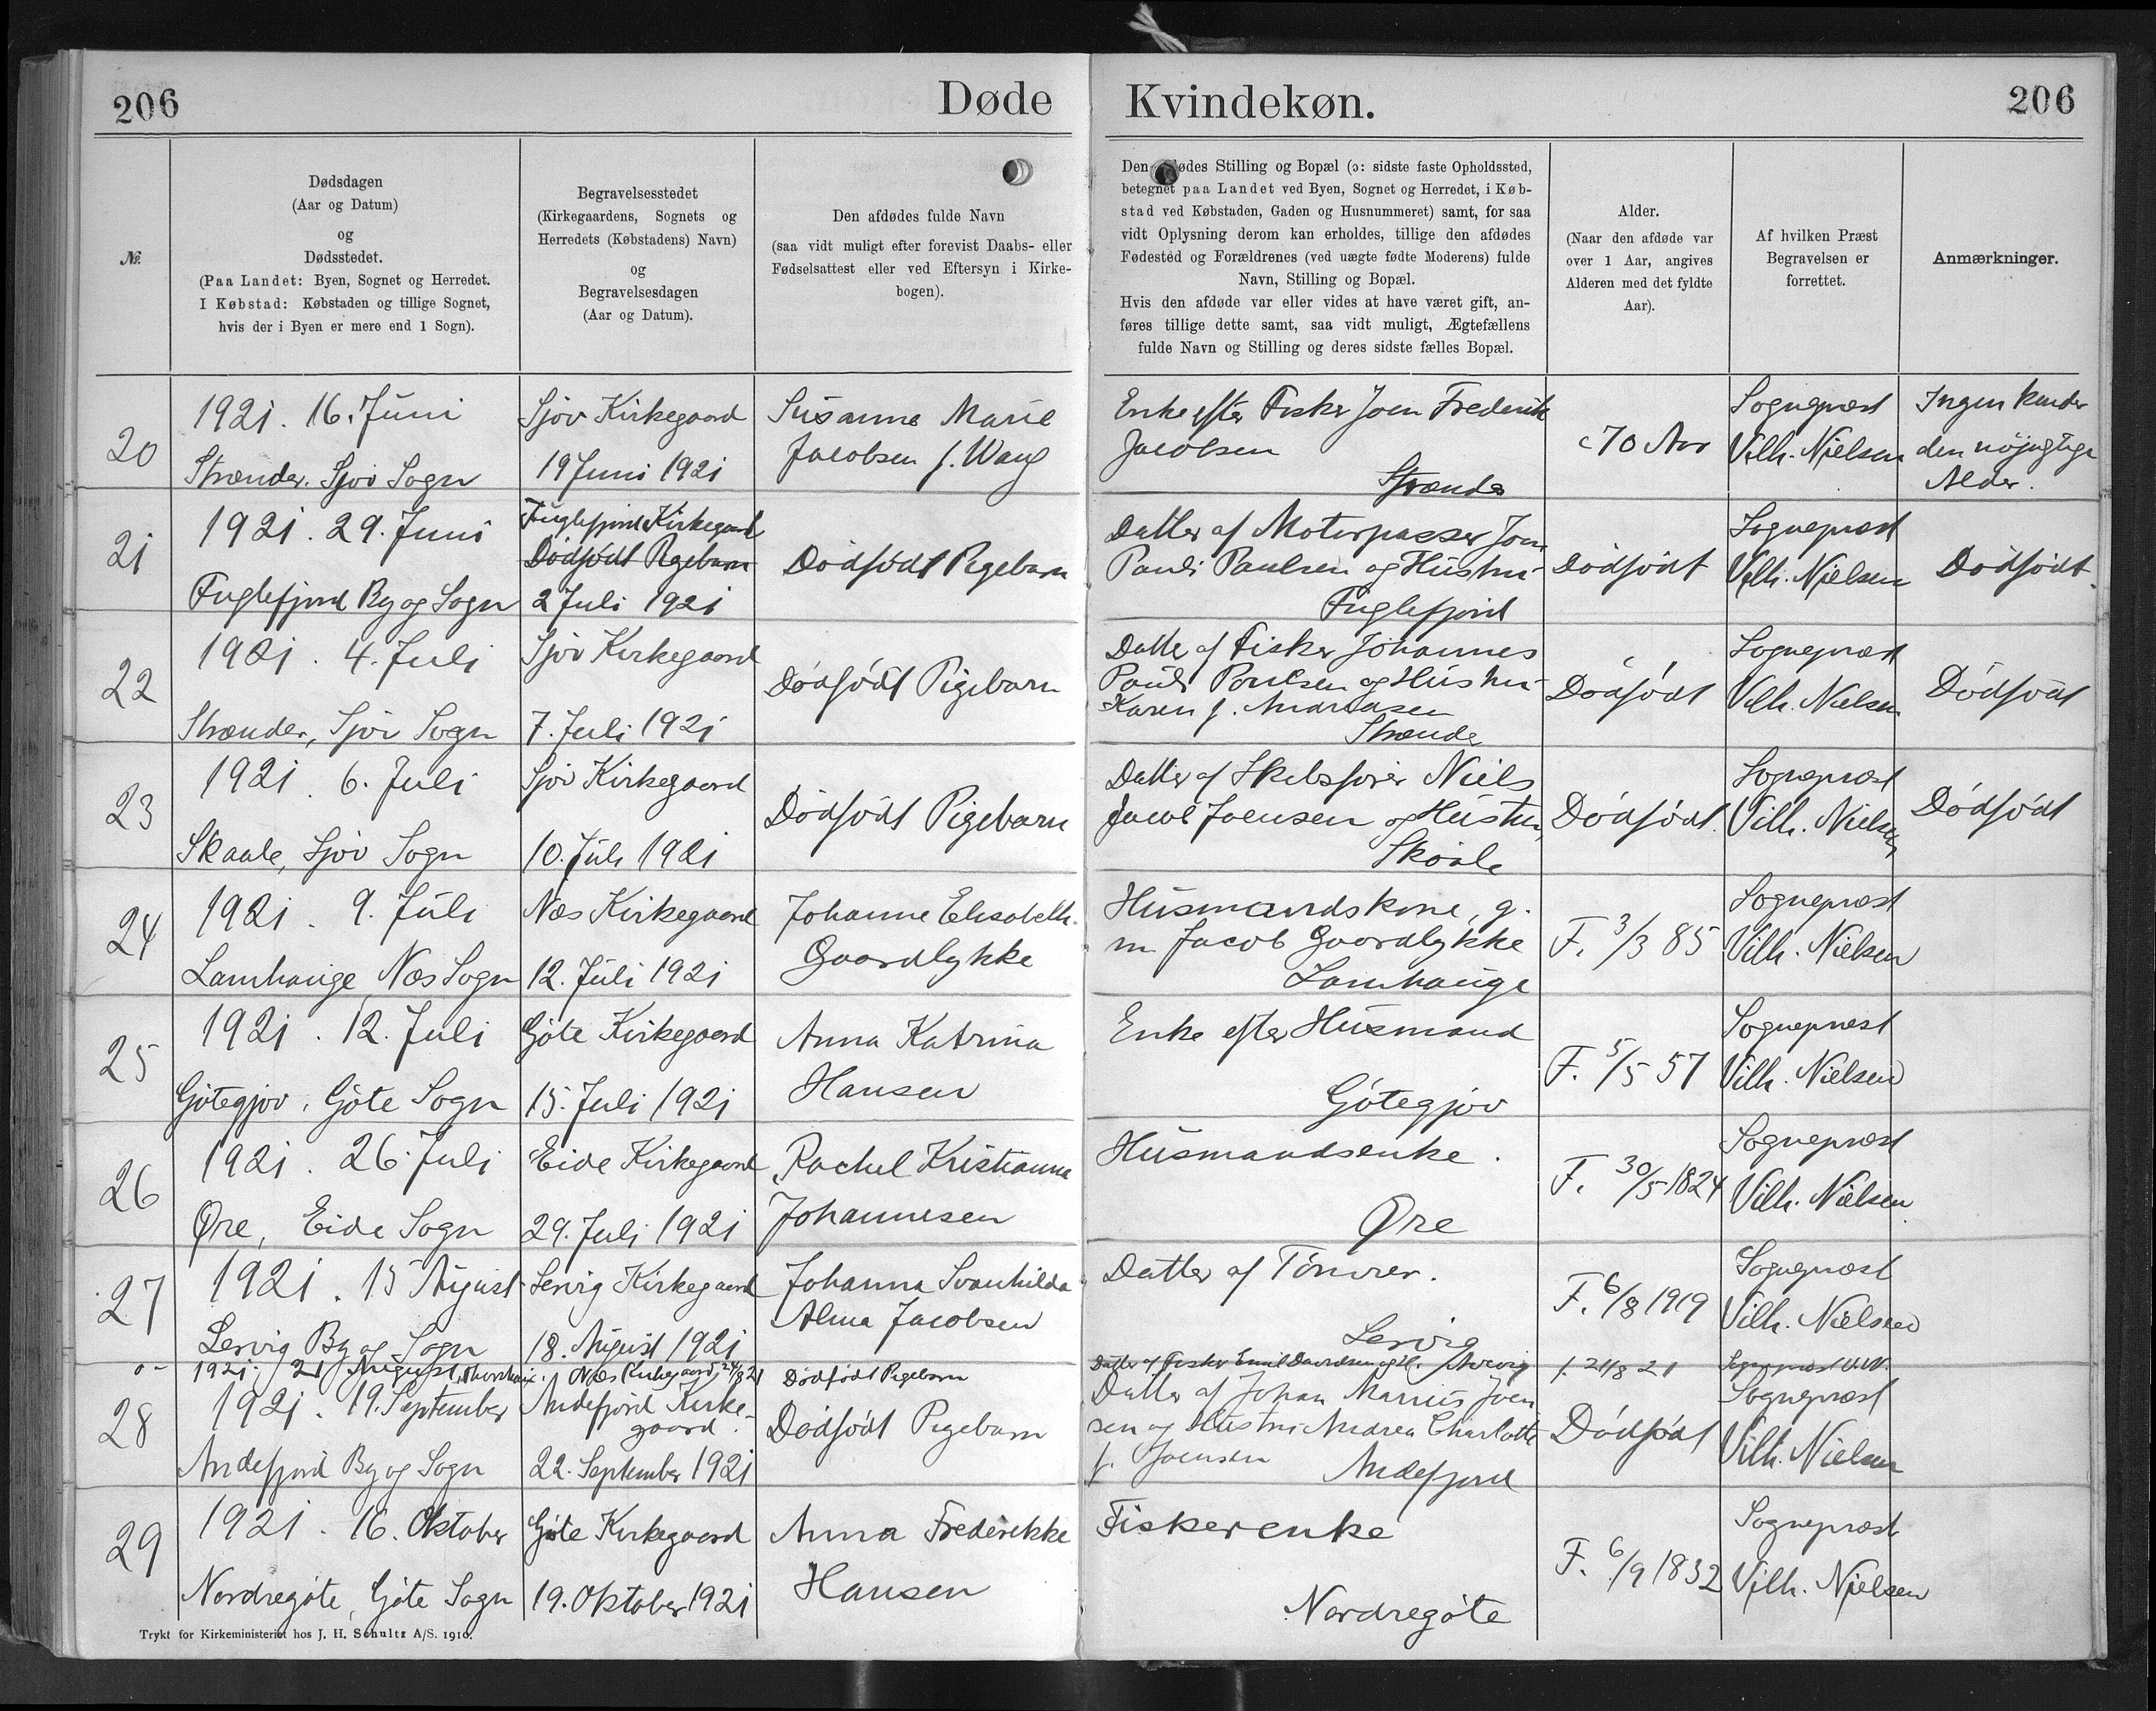 206
Døde
Kvindekøn.
206
№.
Dødsdagen
(Aar og Datum)
og
Dødsstedet.
(Paa Landet: Byen, Sognet og Herredet.
I Købstad: Købstaden og tillige Sognet,
hvis der i Byen er mere end 1 Sogn).
Begravelsesstedet
(Kirkegaardens, Sognets og
Herredets (Købstadens) Navn)
og
Begravelsesdagen
(Aar og Datum).
Den afdødes fulde Navn
(saa vidt muligt efter forevist Daabs- eller
Fødselsattest eller ved Eftersyn i Kirke-
bogen).
Den afdødes Stilling og Bopæl (ɔ: sidste faste Opholdssted,
betegnet paa Landet ved Byen, Sognet og Herredet, i Køb-
stad ved Købstaden, Gaden og Husnummeret) samt, for saa
vidt Oplysning derom kan erholdes, tillige den afdødes
Fødested og Forældrenes (ved uægte fødte Moderens) fulde
Navn, Stilling og Bopæl.
Hvis den afdøde var eller vides at have været gift, an-
føres tillige dette samt, saa vidt muligt, Ægtefællens
fulde Navn og Stilling og deres sidste fælles Bopæl.
Alder.
(Naar den afdøde var
over 1 Aar, angives
Alderen med det fyldte
Aar).
Af hvilken Præst
Begravelsen er
forrettet.
Anmærkninger.
20
1921. 16. Juni
Strænder. Sjov Sogn
Sjóv Kirkegaard
19 Juni 1921
Susanne Marie
Jacobsen f. Wang
Enke efter Fisker Joen Frederik
Jacobsen
Strænde
c 70 Aar
Sognepræst
Vilh. Nielsen
Ingen kender
den nöjagtige
Alder.
21
1921. 29. Juni
Fuglefjord By og Sogn
Fuglefjord Kirkegaard
Dödfödt Pigebarn
2 Juli 1921
Dödfödt Pigebarn
Datter af Motorpasser Joen
Pauli Paulsen og Hustru
Fuglefjord
Dödfödt
Sognepræst
Vilh. Nielsen
Dödfödt
22
1921. 4. Juli
Strænder, Sjóv Sogn
Sjóv Kirkegaard
7. Juli 1921
Dódfódt Pigebarn
Datter af Fisker Johannes
Pauli Poulsen og Hustru
Karen f. Andreasen
Strænde
Dódfódt
Sognepræst
Vilh. Nielsen
Dódfódt
23
1921. 6. Juli
Skaale, Sjóv Sogn
Sjóv Kirkegaard
10. Juli 1921
Dódfódt Pigebarn
Datter af Skibsförer Niels
Jacob Joensen og Hustru
Skaale
Dódfódt.
Sognepræst
Vilh. Nielsen
Dódfódt
24
1921. 9. Juli
Lamhauge, Næs Sogn
Næs Kirkegaard
12. Juli 1921
Johanne Elisabeth
Gaardlykke
Husmandskone, g.
m Jacob Gaardlykke
Lamhauge
F. 3/3 85
Sognepræst
Vilh. Nielsen
25
1921. 12. Juli
Götegjov, Göte Sogn
Göte Kirkegaard
15. Juli 1921
Anna Katrina
Hansen
Enke efter Husmand
Götegjov
F. 5/5 57
Sognepræst
Vilh. Nielsen
26
1921. 26. Juli
Øre, Eide Sogn
Eide Kirkegaard
29. Juli 1921
Rachel Kristianne
Johannesen
Husmandsenke.
Øre
F. 30/5 1824
Sognepræst
Vilh. Nielsen
27
1921. 15 August
Lervig By og Sogn
Lervig Kirkegaard
18. August 1921
Johanna Svanhilda
Alma Jacobsen
Datter af Tómrer.
Lervig
F. 6/8 1919
Sognepræst
Vilh. Nielsen
1921. 21 August
Næs Kirkegaard, 24/8 21
Dödfödt Pigebarn
Datter af Fisker Emil Davidsen og H.
f. 21/8 21
Sognepræst V.N.
28
1921. 19. September
Andefjord By og Sogn
Andefjord Kirke-
gaard.
22. September 1921
Dódfódt Pigebarn
Datter af Johan Marius Joen
sen og Hustru Andrea Charlotte
f. Joensen
Andefjord
Dódfódt
Sognepræst
Vilh. Nielsen
29
1921. 16. Oktober
Nordregöte, Göte Sogn
Göte Kirkegaard
19. Oktober 1921
Anna Frederikke
Hansen
Fiskerenke
Nordregöte
F. 6/9 1832
Sognepræst
Vilh. Nielsen
Trykt for Kirkeministeriet hos J. H. Schultz A/S. 1916.